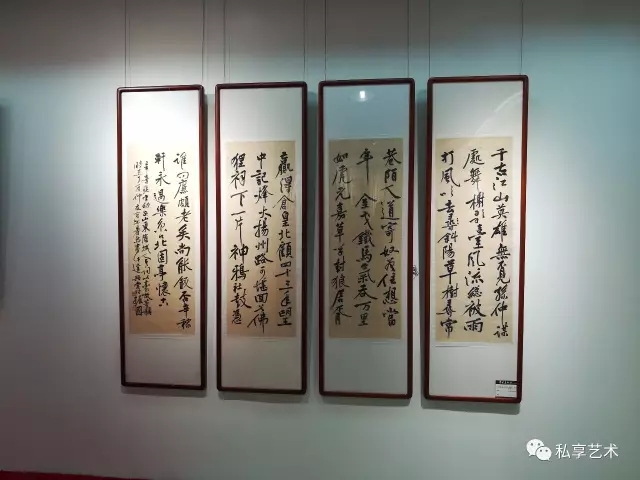 千古江山英雄無覓孫仲謀
處舞榭歌臺風流總被雨
打風吹去斜陽草樹尋常
巷陌人道寄奴曾住想當
年金戈鐵馬氣吞万里
如虎元嘉草草封狼居胥
贏得倉皇北顧四十三年望
中記烽火揚州路可堪回首佛
狸祠下一片神鴉社鼓憑
誰問廉頗老矣尚能飯否辛稼
軒永遇樂京口北固亭懷古
私享艺术